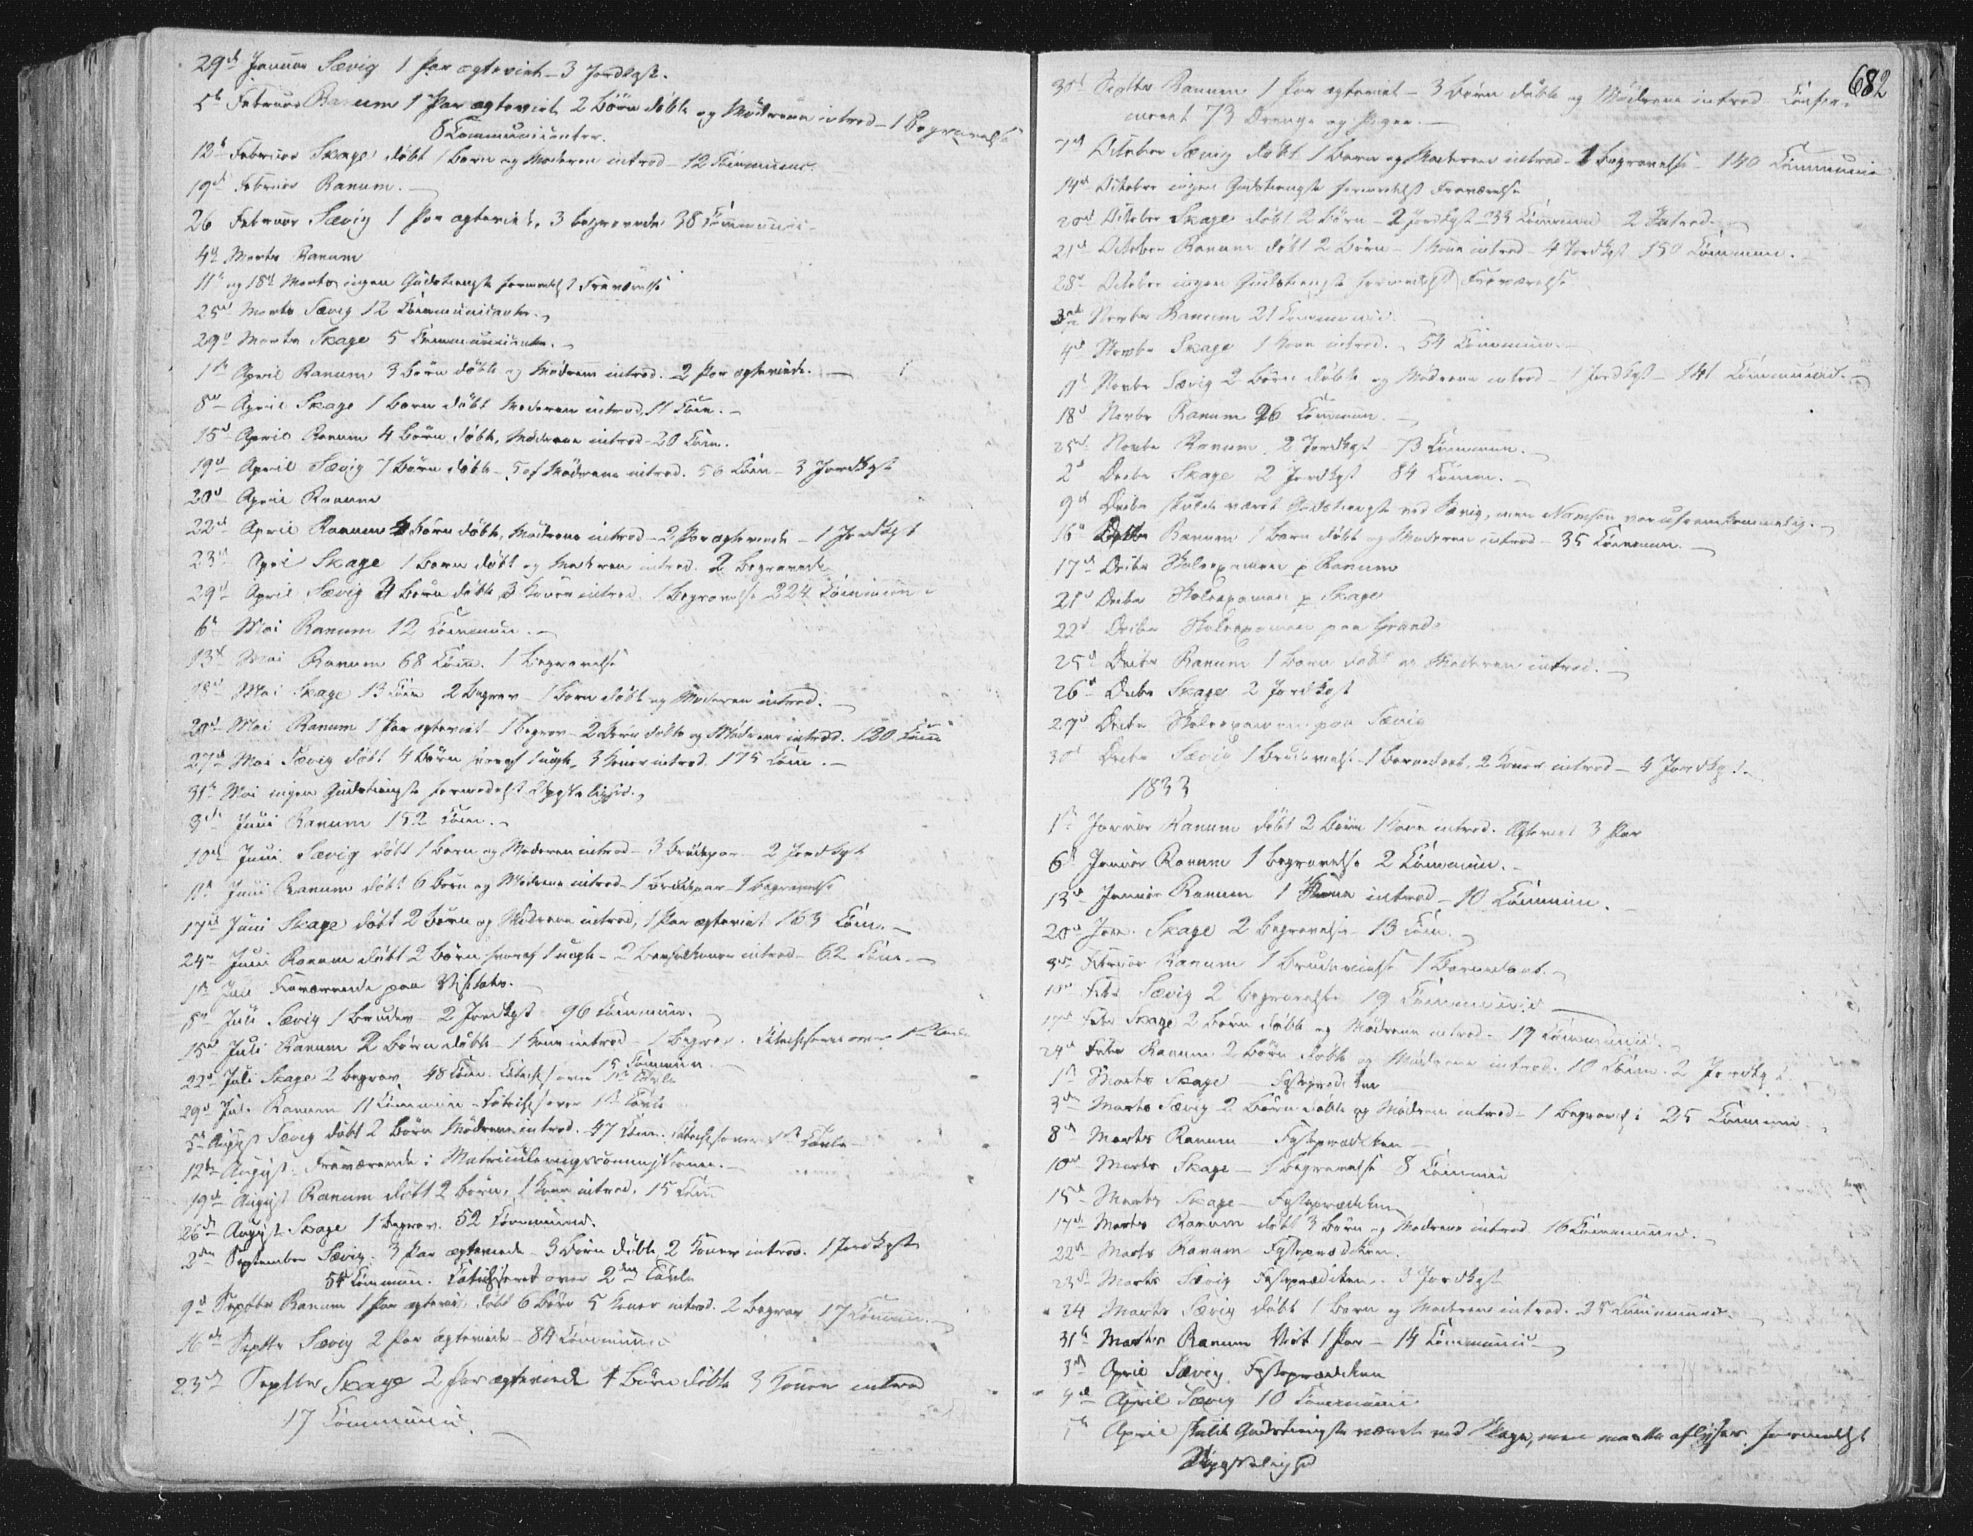 29de Januar Sævig 1 Par ægteviet – 3 Jordkast.
5te Februar Ranum 1 Par ægteviet, 2 Börn döbte og Mödrene introd – 1 Begravelse
8 Communicanter.
12te Februar Skage döbt 1 Barn og Moderen introd – 12 Communic.
19de Februar Ranum. –
26 Februar Sævig 1 Par ægteviet, 3 begravede 38 Communic.
4de Marts Ranum
11te og 18de Marts ingen Gudstieneste formedelst Fraværelse
25de Marts Sævig 12 Communicanter.
29de Marts Skage 5 Communicanter. –
1ste April Ranum 3 Börn döbte og Mödrene introd. 2 Par ægteviede. –
8de April Skage 1 Barn döbt Moderen introd, 11 Com. –
15de April Ranum 4 Börn döbte, Mödrene introd – 20 Com.
19de April Sævig 7 Börn döbte – 5 af Mödrene introd. 56 Com – 3 Jordkast
20de April Ranum
22de April Ranum 4 Börn döbte, Mödrene introd – 2 Par ægteviede – 1 Jordkast
23de April Skage 1 Barn döbt og Moderen introd. 2 Begravede
29de April Sævig 3 Börn döbte, 3 Koner introd. 1 Begravelse 224 Commun
6te Mai Ranum 12 Commun. –
13de Mai Ranum 68 Com. 1 Begravelse
18de Mai Skage 13 Com 2 Begrav – 1 Barn döbt og Moderen introd. –
20de Mai Ranum 1 Par ægteviet 1 Begrav – 2 Börn döbte og Mödrene introd. 120 Com
27de Mai Sævig döbt 4 Börn hvoraf 1 uægte, 3 Koner introd. 175 Com. –
31te Mai ingen Gudstieneste formedelst Upasselighed.
3die Juni Ranum 152 Com. –
10de Juni Sævig döbt 1 Barn og Moderen introd – 3 Brudepar – 2 Jordkast
11te Juni Ranum döbt 6 Börn og Mödrene introd – 1 Brudepar – 1 Begravelse
17de Juni Skage döbt 2 Börn og Mödrene introd, 1 Par ægteviet 163 Com. –
24de Juni Ranum döbt 2 Börn hvoraf 1 uægte – 2 Barselkoner introd – 62 Com. –
1ste Juli Fraværende paa Visitats. –
8de Juli Sævig 1 Brudev – 2 Jordkast – 96 Commun. –
15de Juli Ranum 2 Börn döbte – 1 Kone introd – 1 Begrav. Catechiseret over 1ste Tavle
15 Commun.
22de Juli Skage 2 begrav. 48 Com. Catechis over 1ste Tavle
29de Juli Ranum 11 Commun – Catechis over 1ste Tavle
5te August Sævig döbt 2 Börn Mödrene introd. 47 Com. Catechis over 1ste Tavle
12te August. Fraværende i Matriculeringscommissionen. –
19de August Ranum döbt 2 Börn, 1 Kone introd. 15 Com
26de August Skage 1 Begrav. 52 Commun.
2den September Sævig. 3 Par ægteviede – 3 Börn döbte, 2 Koner introd. 1 Jordkast
54 Commun. Catechiseret over 2den Tavle
9de Septbr Ranum 1 Par ægteviet, döbt 6 Börn 5 Koner introd. 2 Begrav 17 Commun. –
16de Septbr Sævig 2 Par ægteviede – 84 Communic
23de Septbr Skage 2 Par ægteviede 4 Börn döbte 3 Koner introd
17 Communic.
682
30de Septbr Ranum 1 Par ægteviet – 3 Börn döbte og Mödrene introd – Confir-
meret 73 Drenge og Piger. –
7de October Sævig döbt 1 Barn og Moderen introd – 1 Begravelse – 140 Communic
14de October ingen Gudstieneste formedelst Fraværelse
20de October Skage döbt 2 Börn – 2 Jordkast – 33 Commun 2 Introd. –
21de October Ranum döbt 2 Börn – 1 Kone introd – 4 Jordkast 150 Commun. –
28de October ingen Gudstieneste formedelst Fraværelse
3die Novbr Ranum 21 Communic. –
4de Novbr Skage 1 Kone introd. 54 Commun. –
11te Novbr Sævig 2 Börn döbte og Mödrene introd – 1 Jordkast – 141 Communic. –
18de Novbr Ranum 26 Commun. –
25de Novbr Ranum 2 Jordkast – 73 Commun. –
2de Decbr Skage 2 Jordkast 84 Comm. –
9de Decbr skulde været Gudstieneste ved Sævig, men Namsen var ufremkommelig. –
16de Decbr Ranum 1 Barn döbt og Moderen introd – 35 Commun. –
17de Decbr Skoleexamen p Ranum
21de Decbr Skoleexamen p Skage
22de Decbr Skoleexamen paa Grande
25de Decbr Ranum 1 Barn döbt og Moderen introd. –
26de Decbr Skage 2 Jordkast
27de Decbr Skoleexamen paa Sævig
30de Decbr Sævig 1 Brudevielse – 1 Barnedaab, 2 Koner introd – 4 Jordkast –
1833
1ste Januar Ranum döbt 2 Börn 1 Kone introd. Ægteviet 3 Par
6te Januar Ranum 1 Begravelse 2 Commun. –
13de Januar Ranum 1 Kone introd – 10 Commun. –
20de Jan. Skage 2 Begravelse – 13 Com. –
3die Februar Ranum 1 Brudevielse 1 Barnedaab. –
10de Febr Sævig 2 Begravelse 19 Communic –
17de Febr Skage 2 Börn döbte og Mödrene introd – 17 Communic. –
24de Febr Ranum 2 Börn döbte og Mödrene introd. 10 Com. 2 Jordkast
1ste Marts Skage – Fasteprædiken
3die Marts Sævig 2 Börn döbte og Mödrene introd – 1 Begravelse 25 Commun. –
8de Marts Ranum – Fasteprædiken –
10de Marts Skage – 1 Begravelse 8 Commun
15de Marts Skage – Fasteprædiken
17de Marts Ranum döbt 3 Börn og Mödrene introd 16 Commun. –
22de Marts Ranum Fasteprædiken.
23de Marts Sævig Fasteprædiken. 3 Jordkast
24 Marts Sævig döbt 1 Barn og Moderen introd. 25 Commun. –
31te Marts Ranum Viet 1 Par – 14 Communic –
3die April Sævig. Fasteprædiken
4de April Sævig 10 Communic
5te April skulde Gudstieneste været ved Skage, men maatte aflyses formedelst
Sygelighed